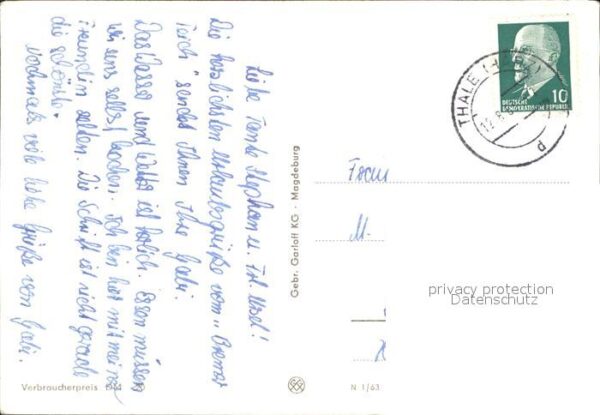 Liebe Tante Stephan u. Frl. Ursel!
Die herzlichsten Urlaubsgrüße vom "Bremer
Teich" sendet Ihnen Ihre Gabi.
Das Wasser und Wetter ist herrlich. Essen müssen
wir uns selbst kochen. Ich bin hier mit meiner
Freundin zelten. Die Schrift ist nicht gerade
die schönste.
Nochmals viele liebe Grüße von Gabi.
Verbraucherpreis
Gebr. Garloff KG · Magdeburg
N 1/63
THALE (HARZ)
d
10
DEUTSCHE
DEMOKRATISCHE REPUBLIK
M.
privacy protection
Datenschutz